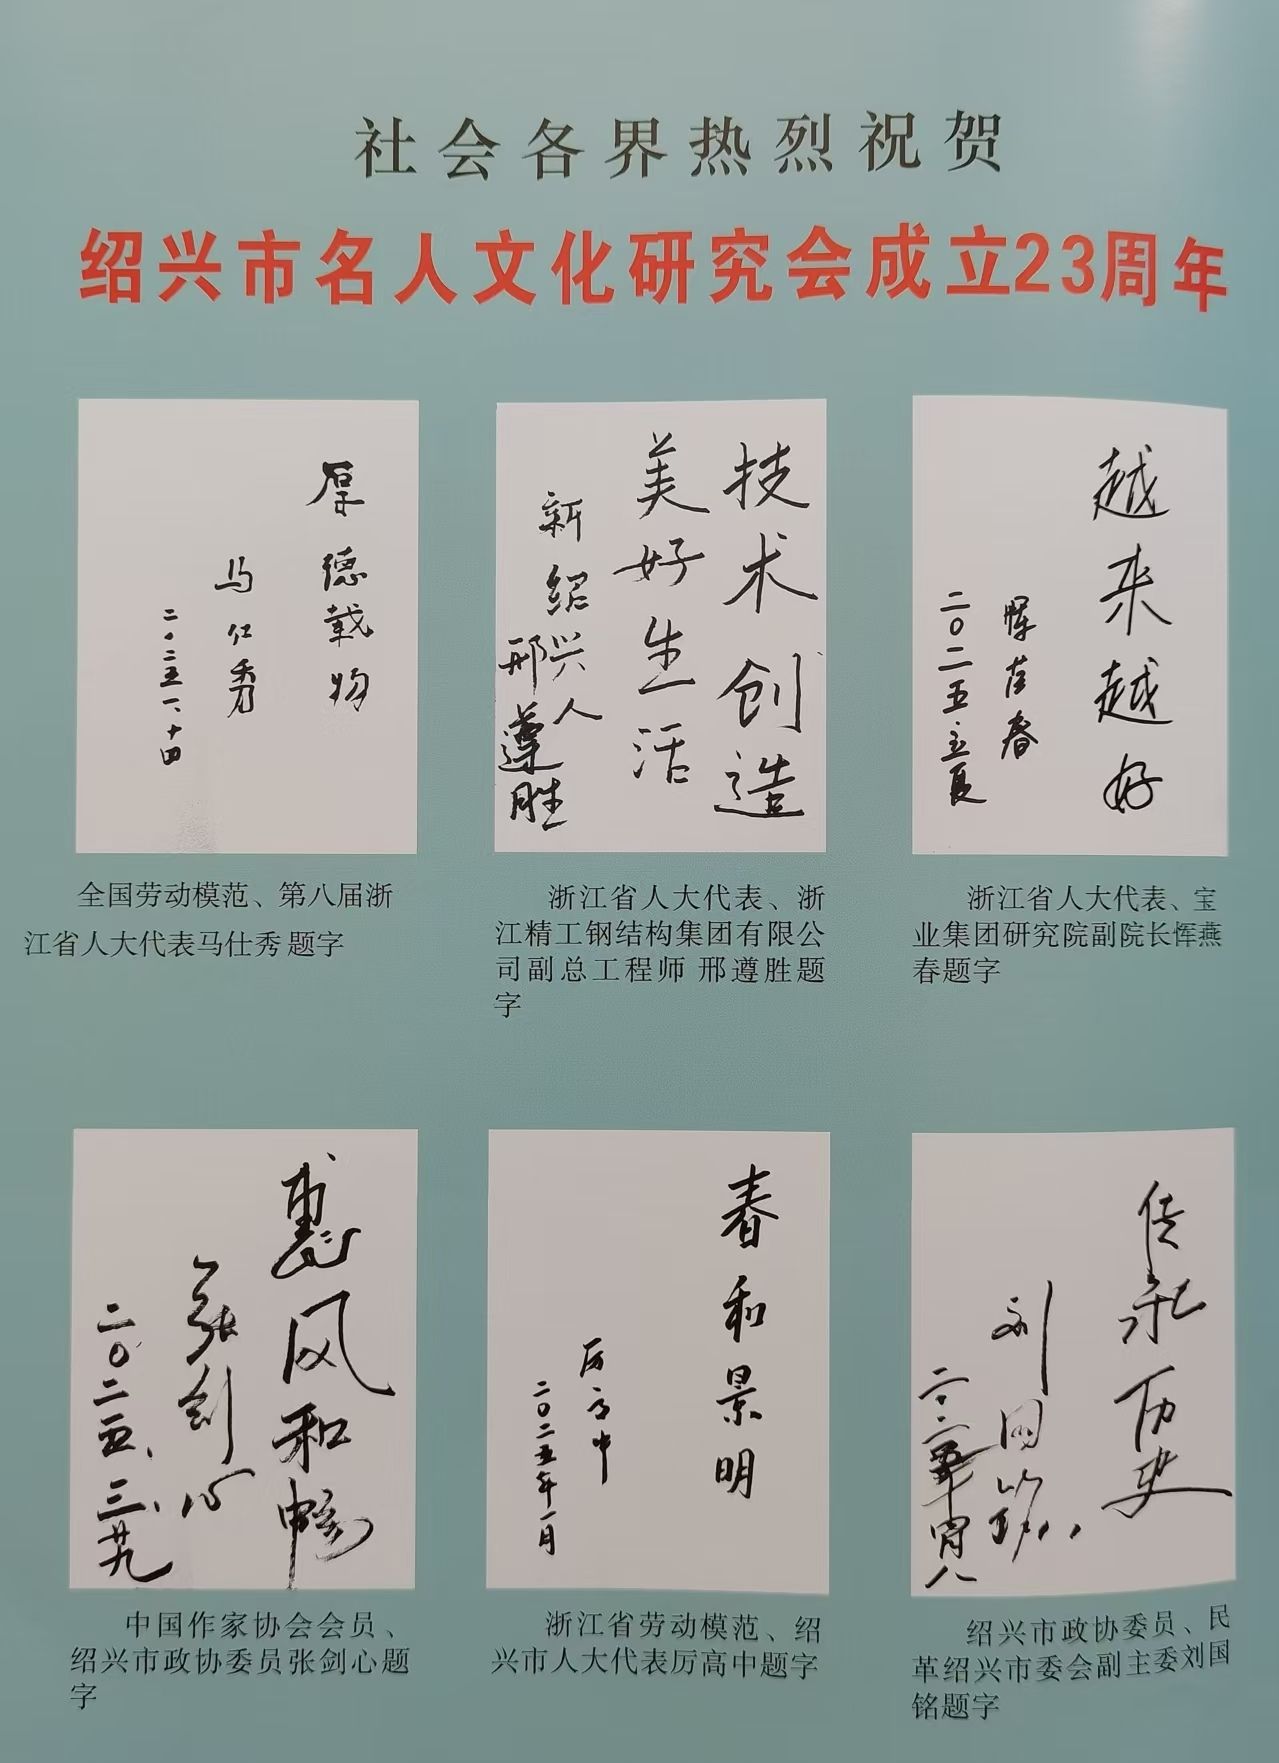 社会各界热烈祝贺
绍兴市名人文化研究会成立23周年
厚德载物
马仕秀
二〇二五一、十四
技术创造
美好生活
新绍兴人
邢遵胜
越来越好
恽燕春
二〇二五.立夏
全国劳动模范、第八届浙
江省人大代表马仕秀题字
浙江省人大代表、浙
江精工钢结构集团有限公
司副总工程师 邢遵胜题
字
浙江省人大代表、宝
业集团研究院副院长恽燕
春题字
惠风和畅
张剑心
二〇二五、三、廿九
春和景明
厉高中
二〇二五年一月
传承历史
刘国铭
二〇二五年
中国作家协会会员、
绍兴市政协委员张剑心题
字
浙江省劳动模范、绍
兴市人大代表厉高中题字
绍兴市政协委员、民
革绍兴市委会副主委刘国
铭题字